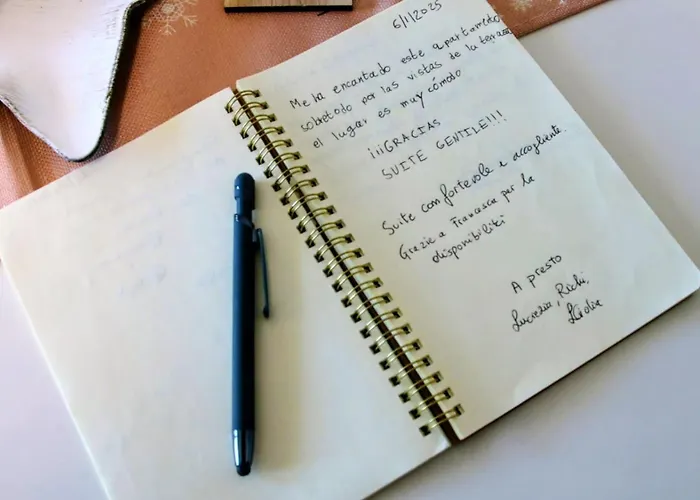 6/1/2025
Me ha encantado este apartamento
sobretodo por las vistas de la terraza
el lugar es muy cómodo
¡¡¡GRACIAS
SUITE GENTILE!!!
Suite confortevole e accogliente.
Grazie a Francesca per la
disponibiliti
A presto
Lucrezia, Richi,